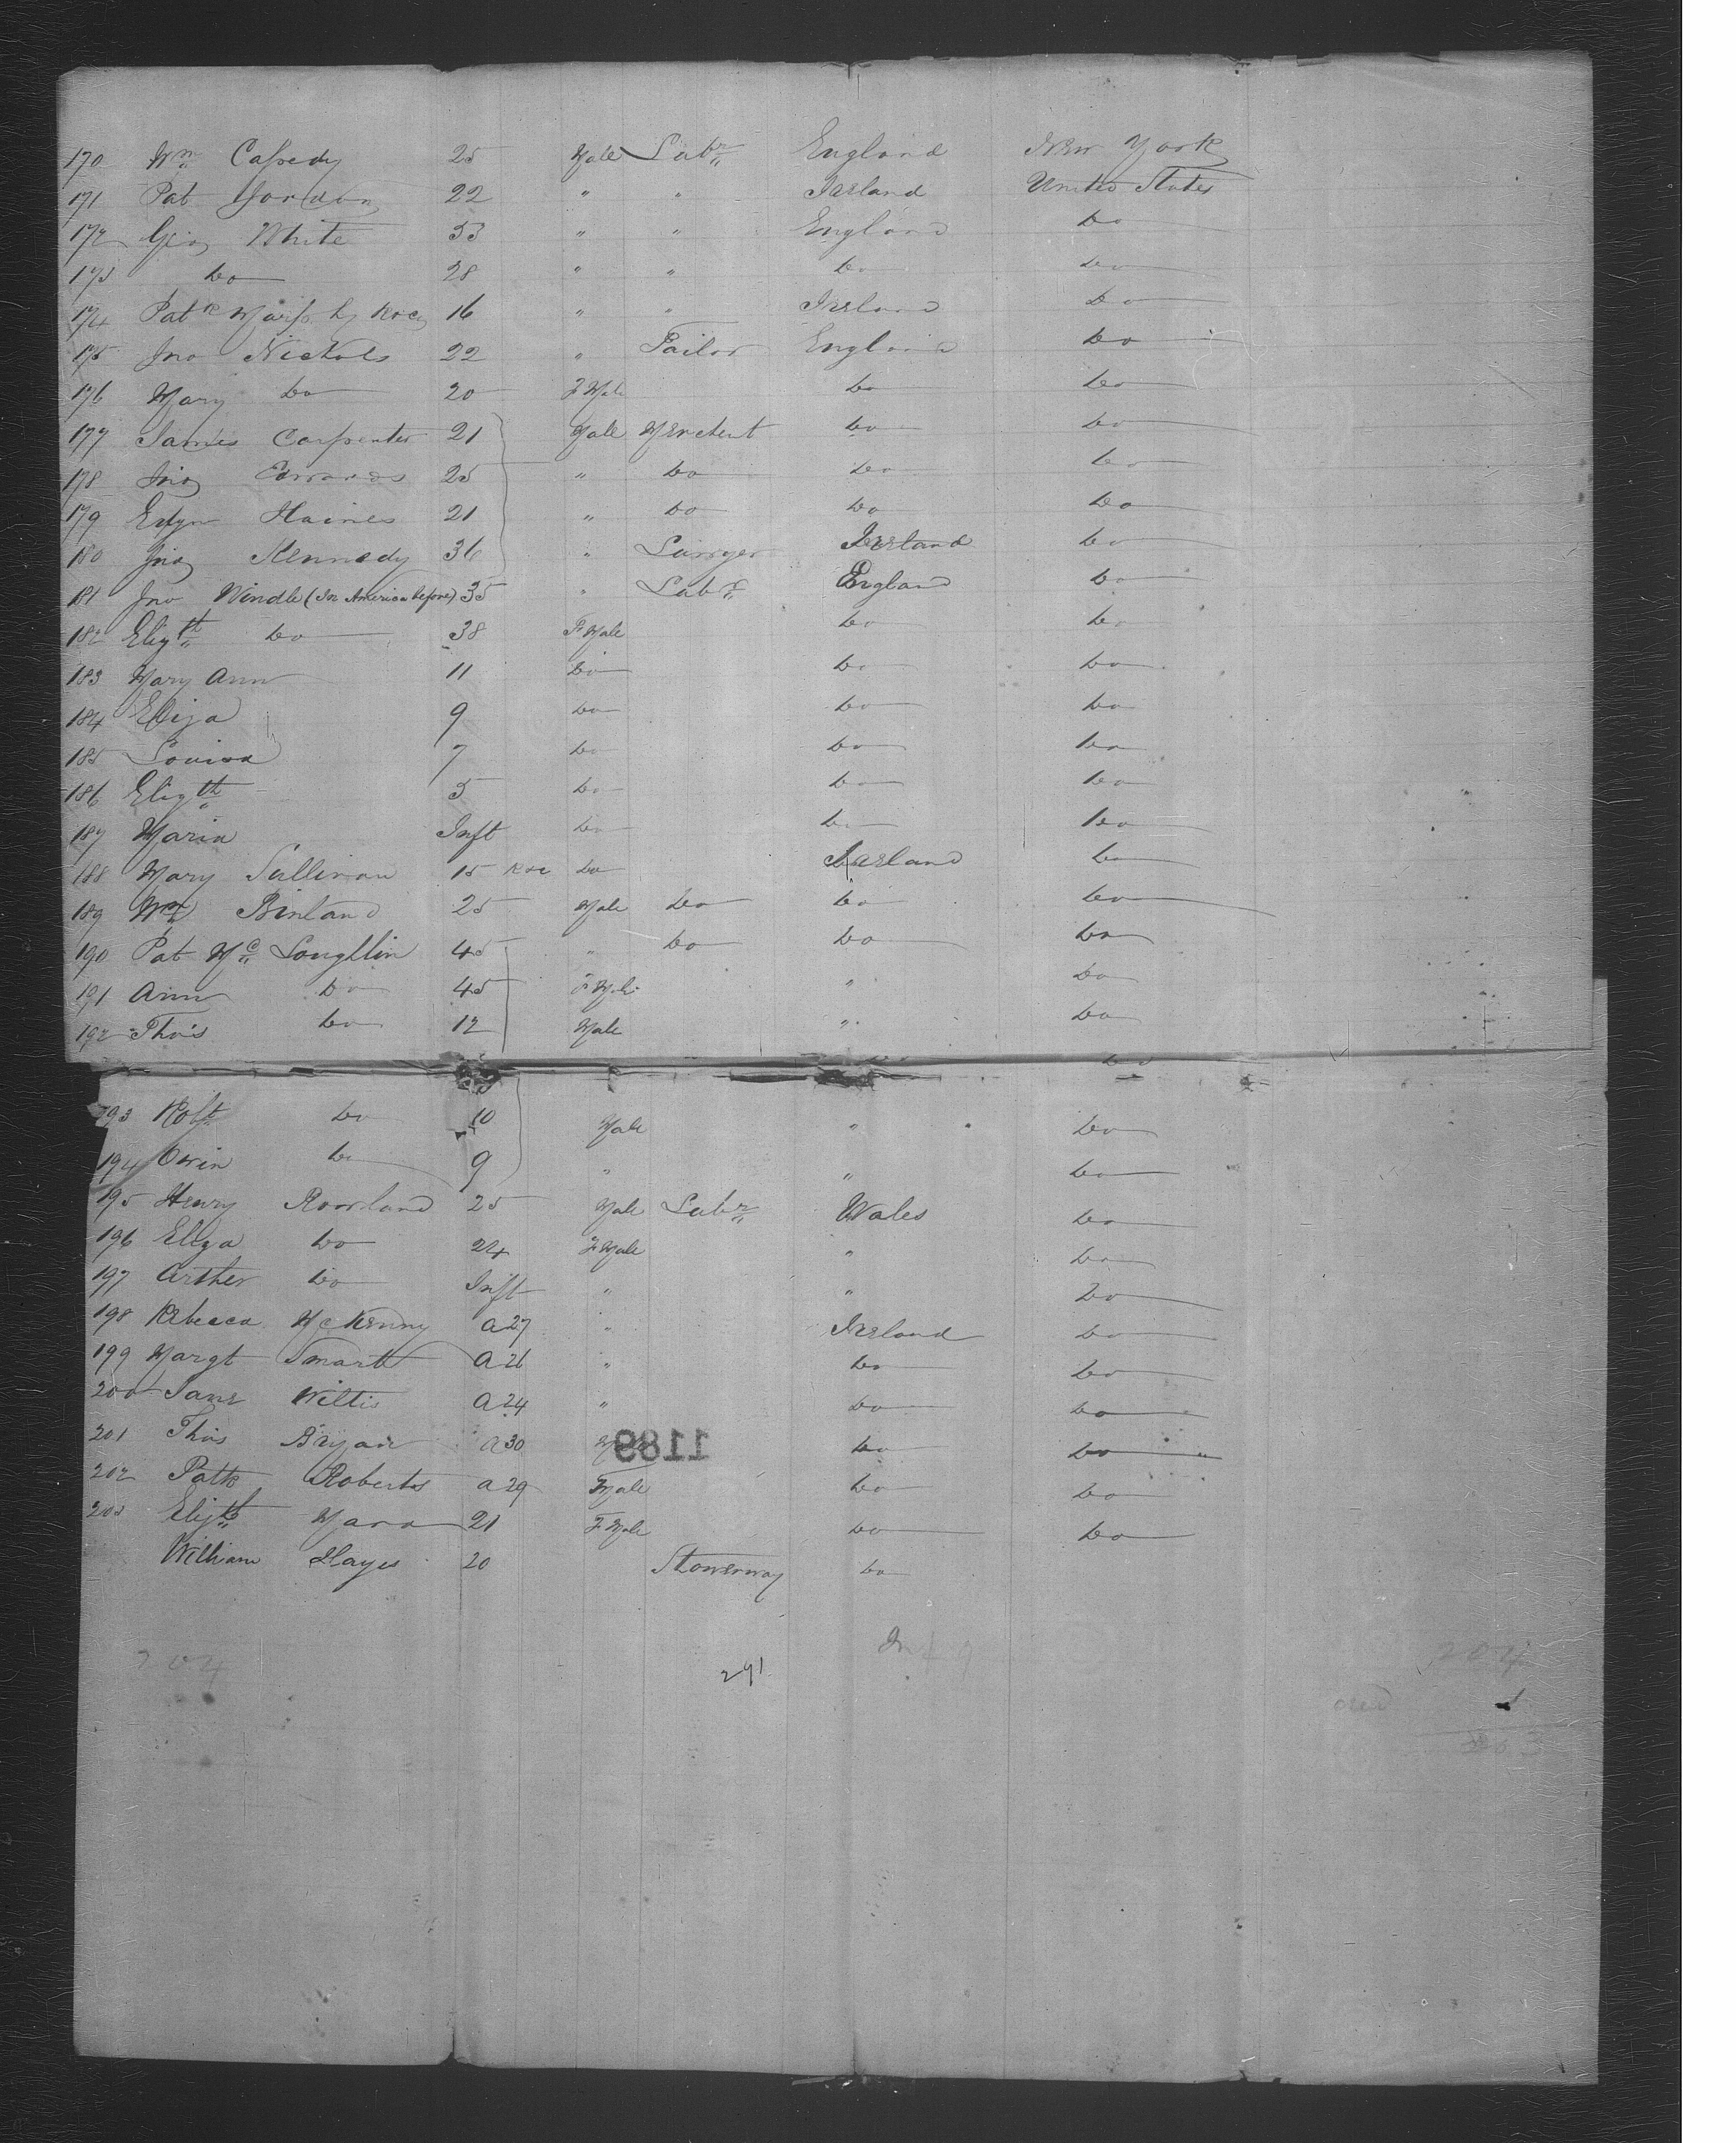 170 Wm Cassedy 25 Male Labr England New York
171 Pat Jordan 22 " " Ireland United States
172 Geo White 33 " " England Do
173 Do 28 " " Do Do
174 Patk 16 " " Ireland Do
175 Jno Nichols 22 " Tailor England Do
176 Mary Do 20 F Male Do Do
177 James Carpenter 21 Male Merchent Do Do
178 Jno Edwards 25 " Do Do Do
179 Haines 21 " Do Do Do
180 Jno Kennedy 36 " Ireland Do
181 Jno Windle (In America before) 35 " Labr England Do
182 Elizth Do 38 F Male Do Do
183 Mary Ann 11 Do Do Do
184 Eliza 9 Do Do Do
185 Louisa 7 Do Do Do
186 Elizth 5 Do Do Do
187 Maria Inft Do Do Do
188 Mary Sullivan 15 Do Ireland Do
189 Wm 25 Male Do Do Do
190 Pat Mc Loughlin 45 " Do Do Do
191 Ann Do 45 F Male " Do
192 Thos Do 12 Male " Do
193 Robt Do 10 Male " Do
194 Owin Do 9 " " Do
195 Henry Rowland 25 Male Labr Wales Do
196 Eliza Do 24 F Male " Do
197 Arther Do Inft " " Do
198 Rebecca McKenny a 27 " Ireland Do
199 Margt Smart a 26 " Do Do
200 Jane Wiltis a 24 " Do Do
201 Thos Bryan a 30 Do Do
1189
202 Patk Roberts a 29 Male Do Do
203 Elizth 21 F Male Do Do
William Hayes 20 Stowerway Do
204 291 204